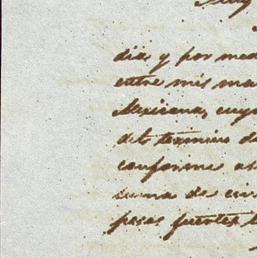 dias y por med
entre mis ma
Mexicana, cuyo
del termino de
conforme a
suma de cin
pesos fuertes